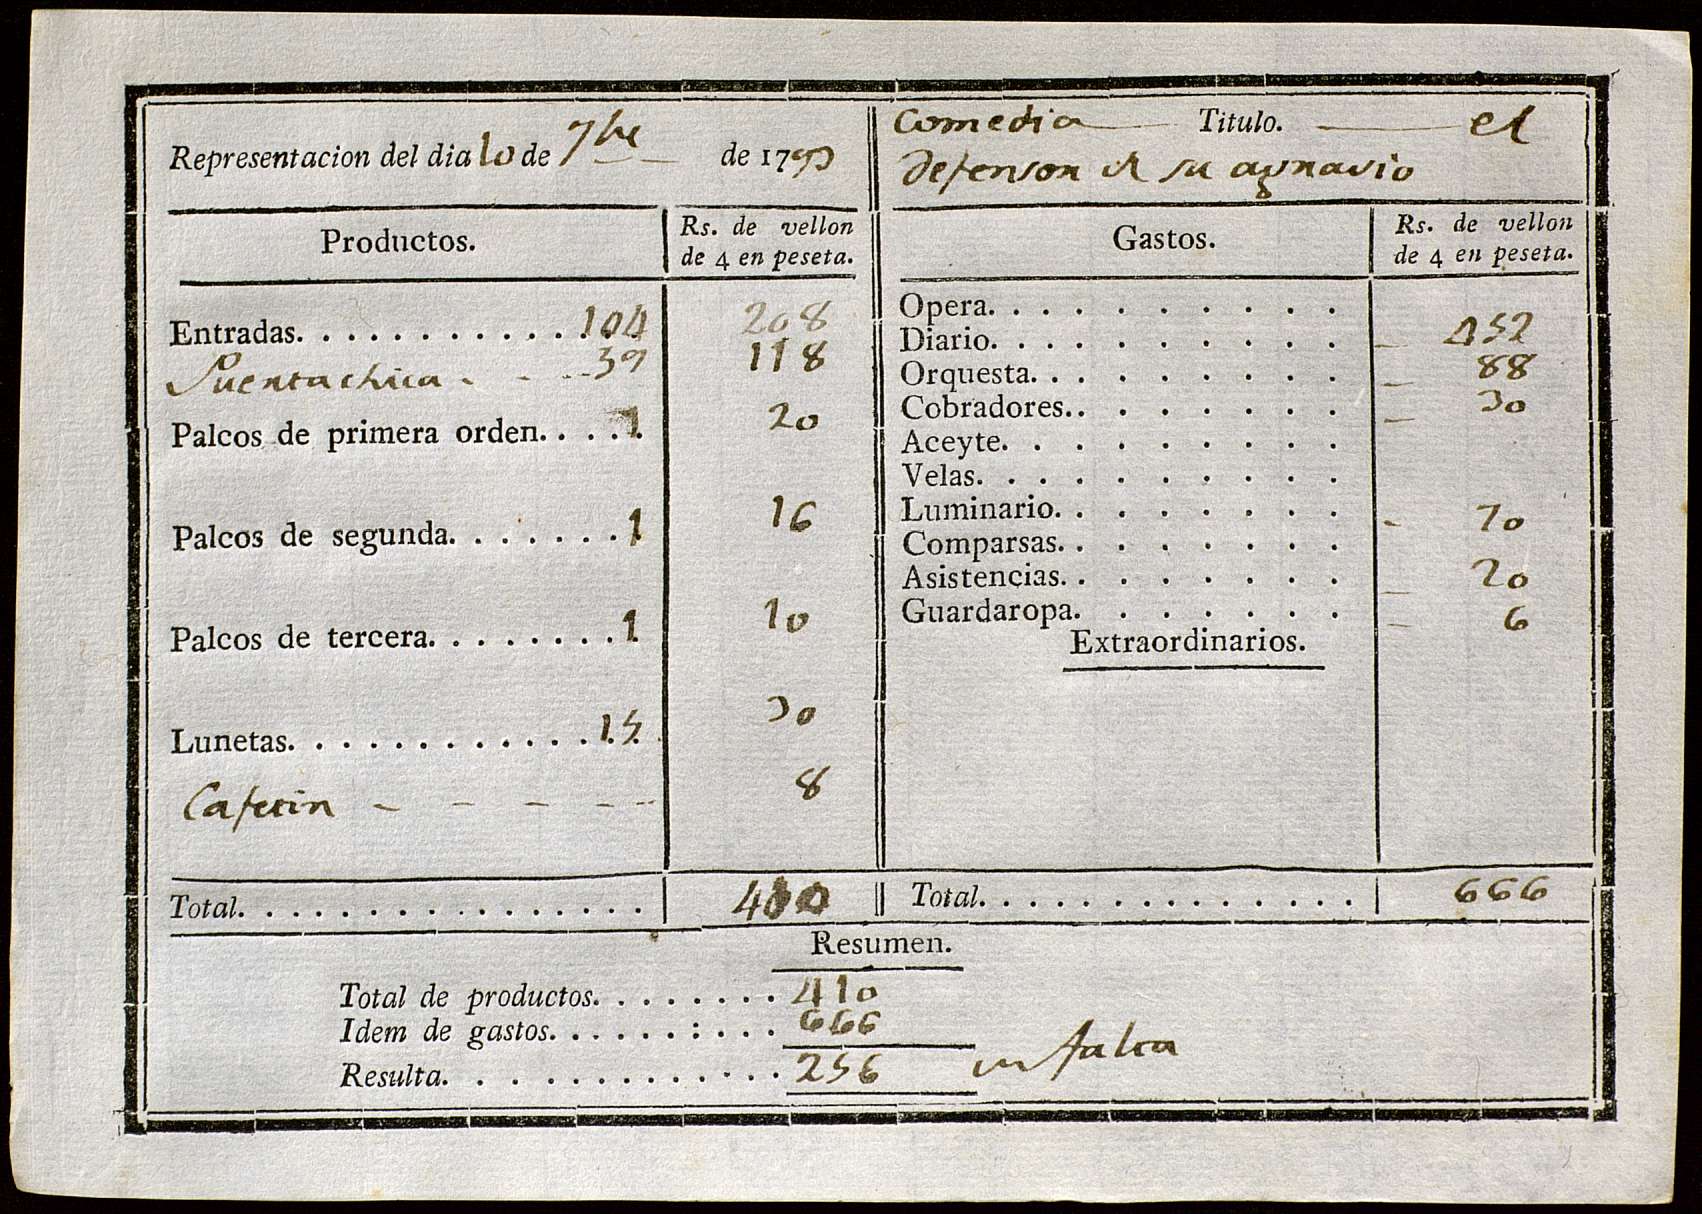 Representacion del dia 10 de 7bre de 17
Comedia Titulo. el
defensor de su agravio
Productos. Rs. de vellon
de 4 en peseta.
Entradas. 104 208
Puerta chica 59 118
Palcos de primera orden. 1 20
Palcos de segunda. 1 16
Palcos de tercera. 1 10
Lunetas. 15 30
Cafetin 8
Total. 410
Gastos. Rs. de vellon
de 4 en peseta.
Opera.
Diario. 452
Orquesta. 88
Cobradores. 30
Aceyte.
Velas.
Luminario. 70
Comparsas.
Asistencias. 20
Guardaropa. 6
Extraordinarios.
Total. 666
Resumen.
Total de productos. 410
Idem de gastos. 666
Resulta. 256 en falta